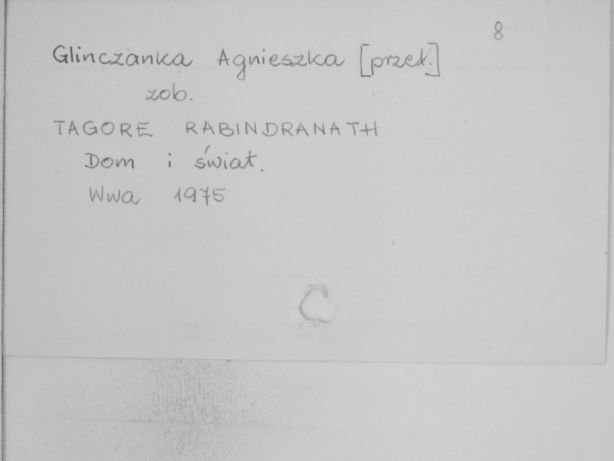 8
Glinczanka Agnieszka [przeł.]
zob.
TAGORE RABINDRANATH
Dom i świat.
Wwa 1975